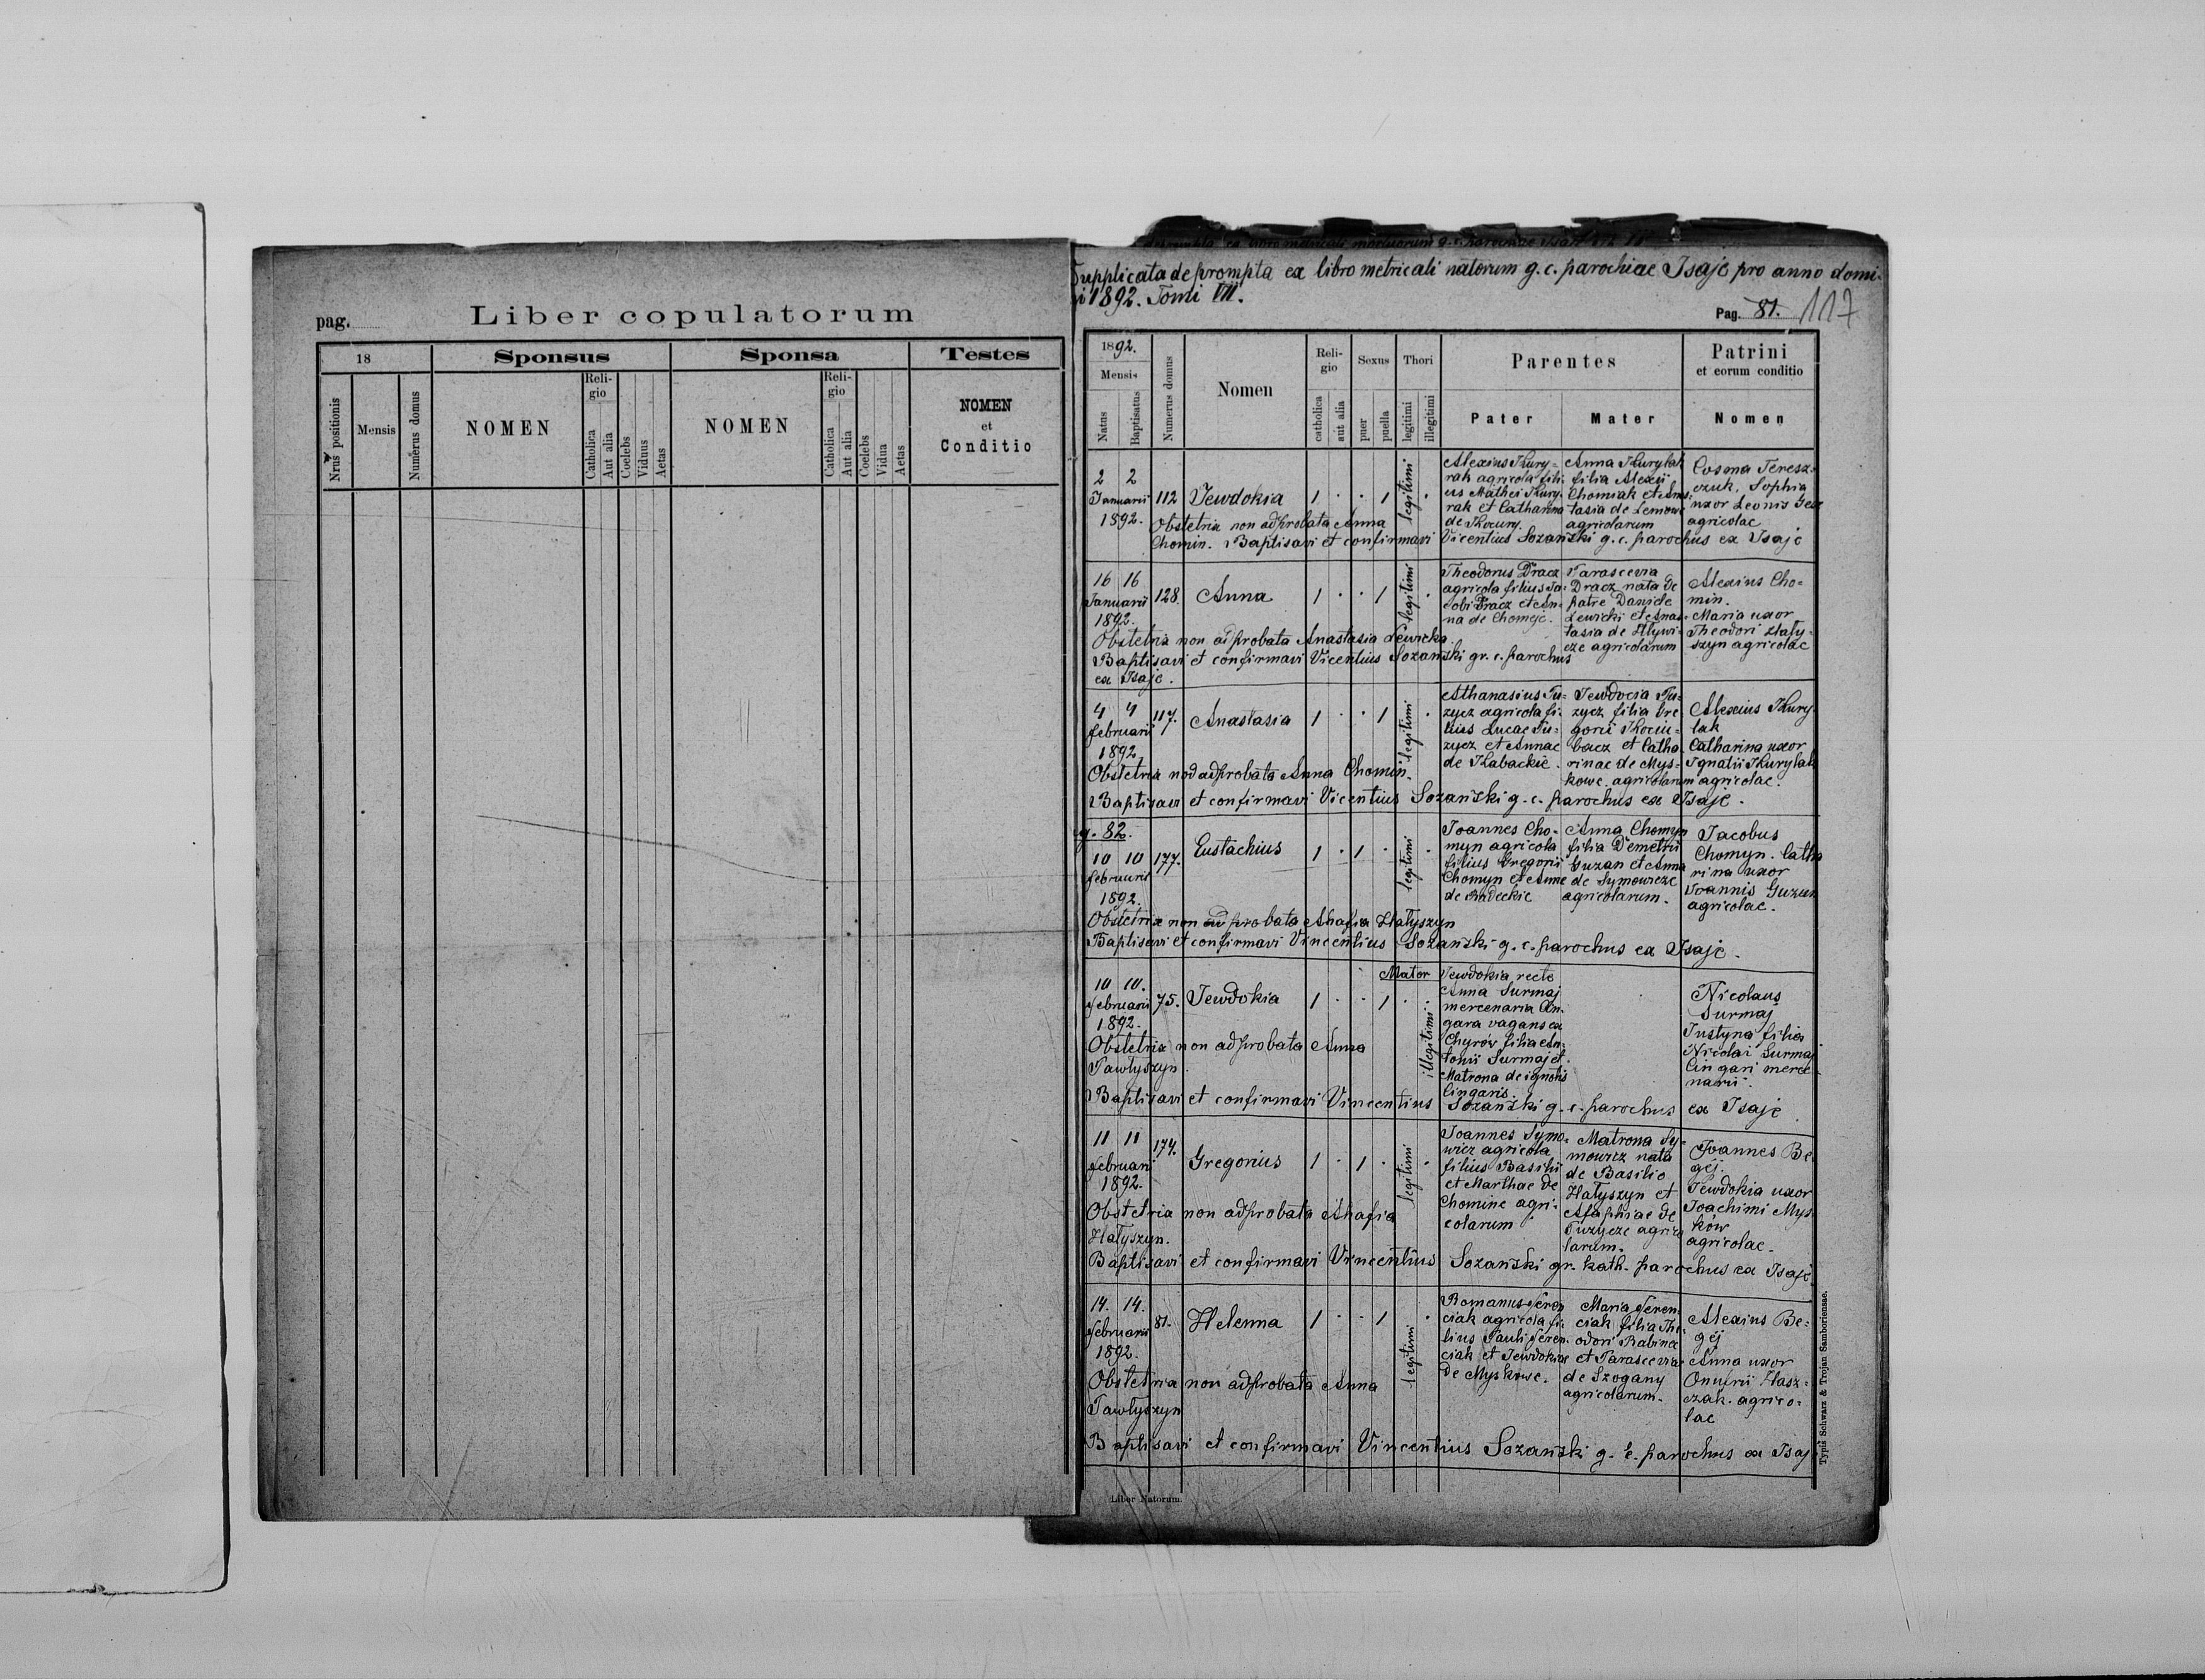 pag.
Liber copulatorum
18
Sponsus
Sponsa
Testes
Nrus positionis
Mensis
Numerus domus
NOMEN
Reli-
gio
Catholica
Aut alia
Coelebs
Viduus
Aetas
NOMEN
Reli-
gio
Catholica
Aut alia
Coelebs
Vidua
Aetas
NOMEN
et
Conditio
Dupplicata deprompta ex libro metricali natorum g. c. parochiae Isaje pro anno domi-
ni 1892. Tomi VII.
Pag. 81. 117
1892.
Mensis
Natus
Baptisatus
Numerus domus
Nomen
Reli-
gio
catholica
aut alia
Sexus
puer
puella
Thori
legitimi
illegitimi
Parentes
Pater
Mater
Patrini
et eorum conditio
Nomen
2 2
Januarii
1892.
112
Jewdokia
1 . . 1
legitimi
.
Alexius Kury-
rak agricola fili-
us Mathei Kury-
rak et Catharina
de Kocury.
Anna Kurylak
filia Alexii
Chomiak et Anas-
tasia de
agricolarum
Cosma Teresz-
czuk, Sophia
uxor Leonis
agricolae
Obstetrix non adprobata Anna
Chomin. Baptisavi et confirmavi Vicentius Sozański g. c. parochus ex Isaje
16 16
Januarii
1892.
128.
Anna
1 . . 1
legitimi
.
Theodorus Dracz
agricola filius Ja-
cobi Dracz et An-
na de Chomeje.
Parascevia
Dracz nata de
patre Daniele
Lewicki et Anas-
tasia de Hlywi-
cze agricolarum
Alexius Cho-
min.
Maria uxor
Theodori Haty-
szyn agricolae
Obstetrix non adprobata Anastasia Lewicka.
Baptisavi et confirmavi Vicentius Sozański gr. c. parochus
ex Isaje.
4 4
februarii
1892
117.
Anastasia
1 . . 1
legitimi
.
Athanasius Tu-
zycz agricola fi-
lius Lucae Tu-
zycz et Annae
de Kabackie.
Jewdocia Tu-
zycz filia Gre-
gorii Kociu-
bacz et Catha-
rinae de Mys-
kowe. agricolarum
Alexius Kury-
lak
Catharina uxor
Ignatii Kurylak
agricolae.
Obstetrix nod adprobata Anna Chomin.
Baptisavi et confirmavi Vicentius Sozański g. c. parochus ex Isaje.
g. 82.
10 10
februarii
1892.
177.
Eustachius
1 . 1 .
legitimi
.
Joannes Cho-
myn agricola
filius Gregorii
Chomyn et Anne
de Radeckie
Anna Chomyn
filia Demetrii
Guzan et Anna
de Symowicze
agricolarum.
Jacobus
Chomyn. Catha
rina uxor
Joannis Guzan
agricolae.
Obstetrix non adprobata Ahafia Hatyszyn
Baptisavi et confirmavi Vincentius Sozański g. c. parochus ex Isaje.
10 10.
februarii
1892.
75.
Jewdokia
1 . . 1 .
illegitimi
Mater
Jewdokia recte
Anna Surmaj
mercenaria Cin-
gara vagans ex
Chyrów filia An-
tonii Surmaj et
Matrona de ignotis
Cingaris.
Nicolaus
Surmaj
Justyna filia
Nicolai Surmaj
Cingari merce-
narii.
Obstetrix non adprobata Anna
Pawłyszyn
Baptisavi et confirmavi Vincentius Sozański g. c. parochus ex Isaje
11 11
februarii
1892.
174.
Gregorius
1 . 1 .
legitimi
.
Joannes Symo-
wicz agricola
filius Basilii
et Marthae de
Chomine agri-
colarum
Matrona Sy-
mowicz nata
de Basilio
Hatyszyn et
Ataphiae de
Tuzycze agrico
larum.
Joannes Be
gej.
Jewdokia uxor
Joachimi Mys
ków
agricolae.
Obstetrix non adprobata Ahafia
Hatyszyn.
Baptisavi et confirmavi Vincentius Sozański gr. kath. parochus ex Isaje
14. 14.
februarii
1892.
81.
Helenna
1 . . 1
legitimi
.
Romanus Feren
ciak agricola fi-
lius Pauli Feren-
ciak et Jewdokiae
de Myskowe.
Maria Feren-
ciak filia The-
odori Rabincz
et Parascevia
de Szogany
agricolarum.
Alexius Be-
gej
Anna uxor
Onufrii Hasz-
czak. agrico-
lae
Obstetrix non adprobata Anna
Pawłyszyn
Baptisavi et confirmavi Vincentius Sozański g. c. parochus ex Isaj
Liber Natorum.
Typis Schwarz & Trojan Samboriensae.